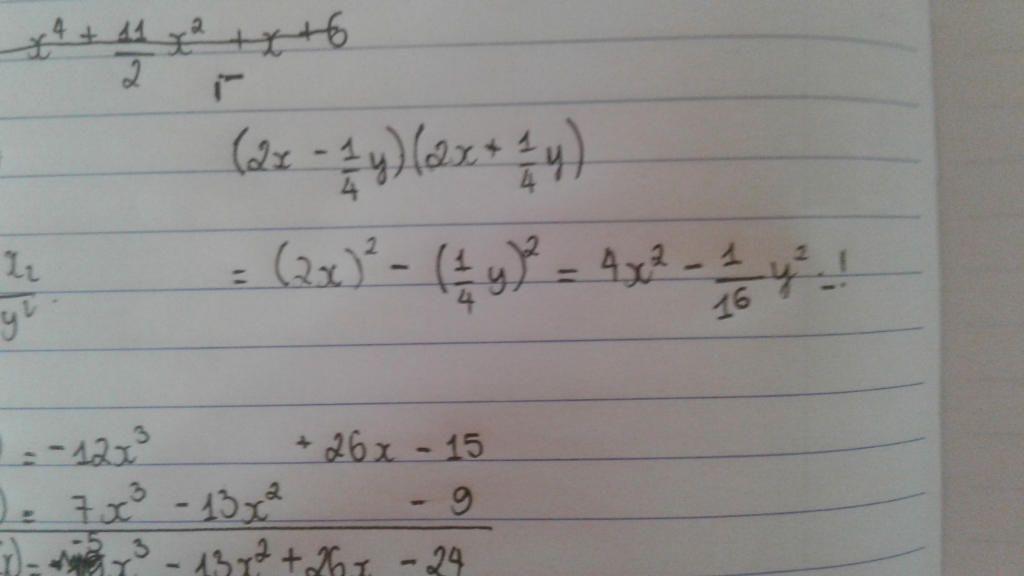 x⁴ + 11/2 x² + x + 6
(2x - 1/4 y)(2x + 1/4 y)
= (2x)² - (1/4 y)² = 4x² - 1/16 y²
= -12x³ + 26x - 15
) = 7x³ - 13x² - 9
x) = -5x³ - 13x² + 26x - 24